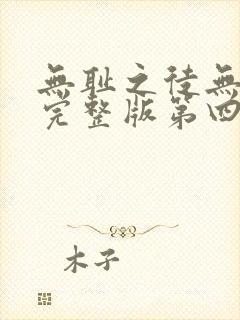 無耻之徒無
完整版第四
木子